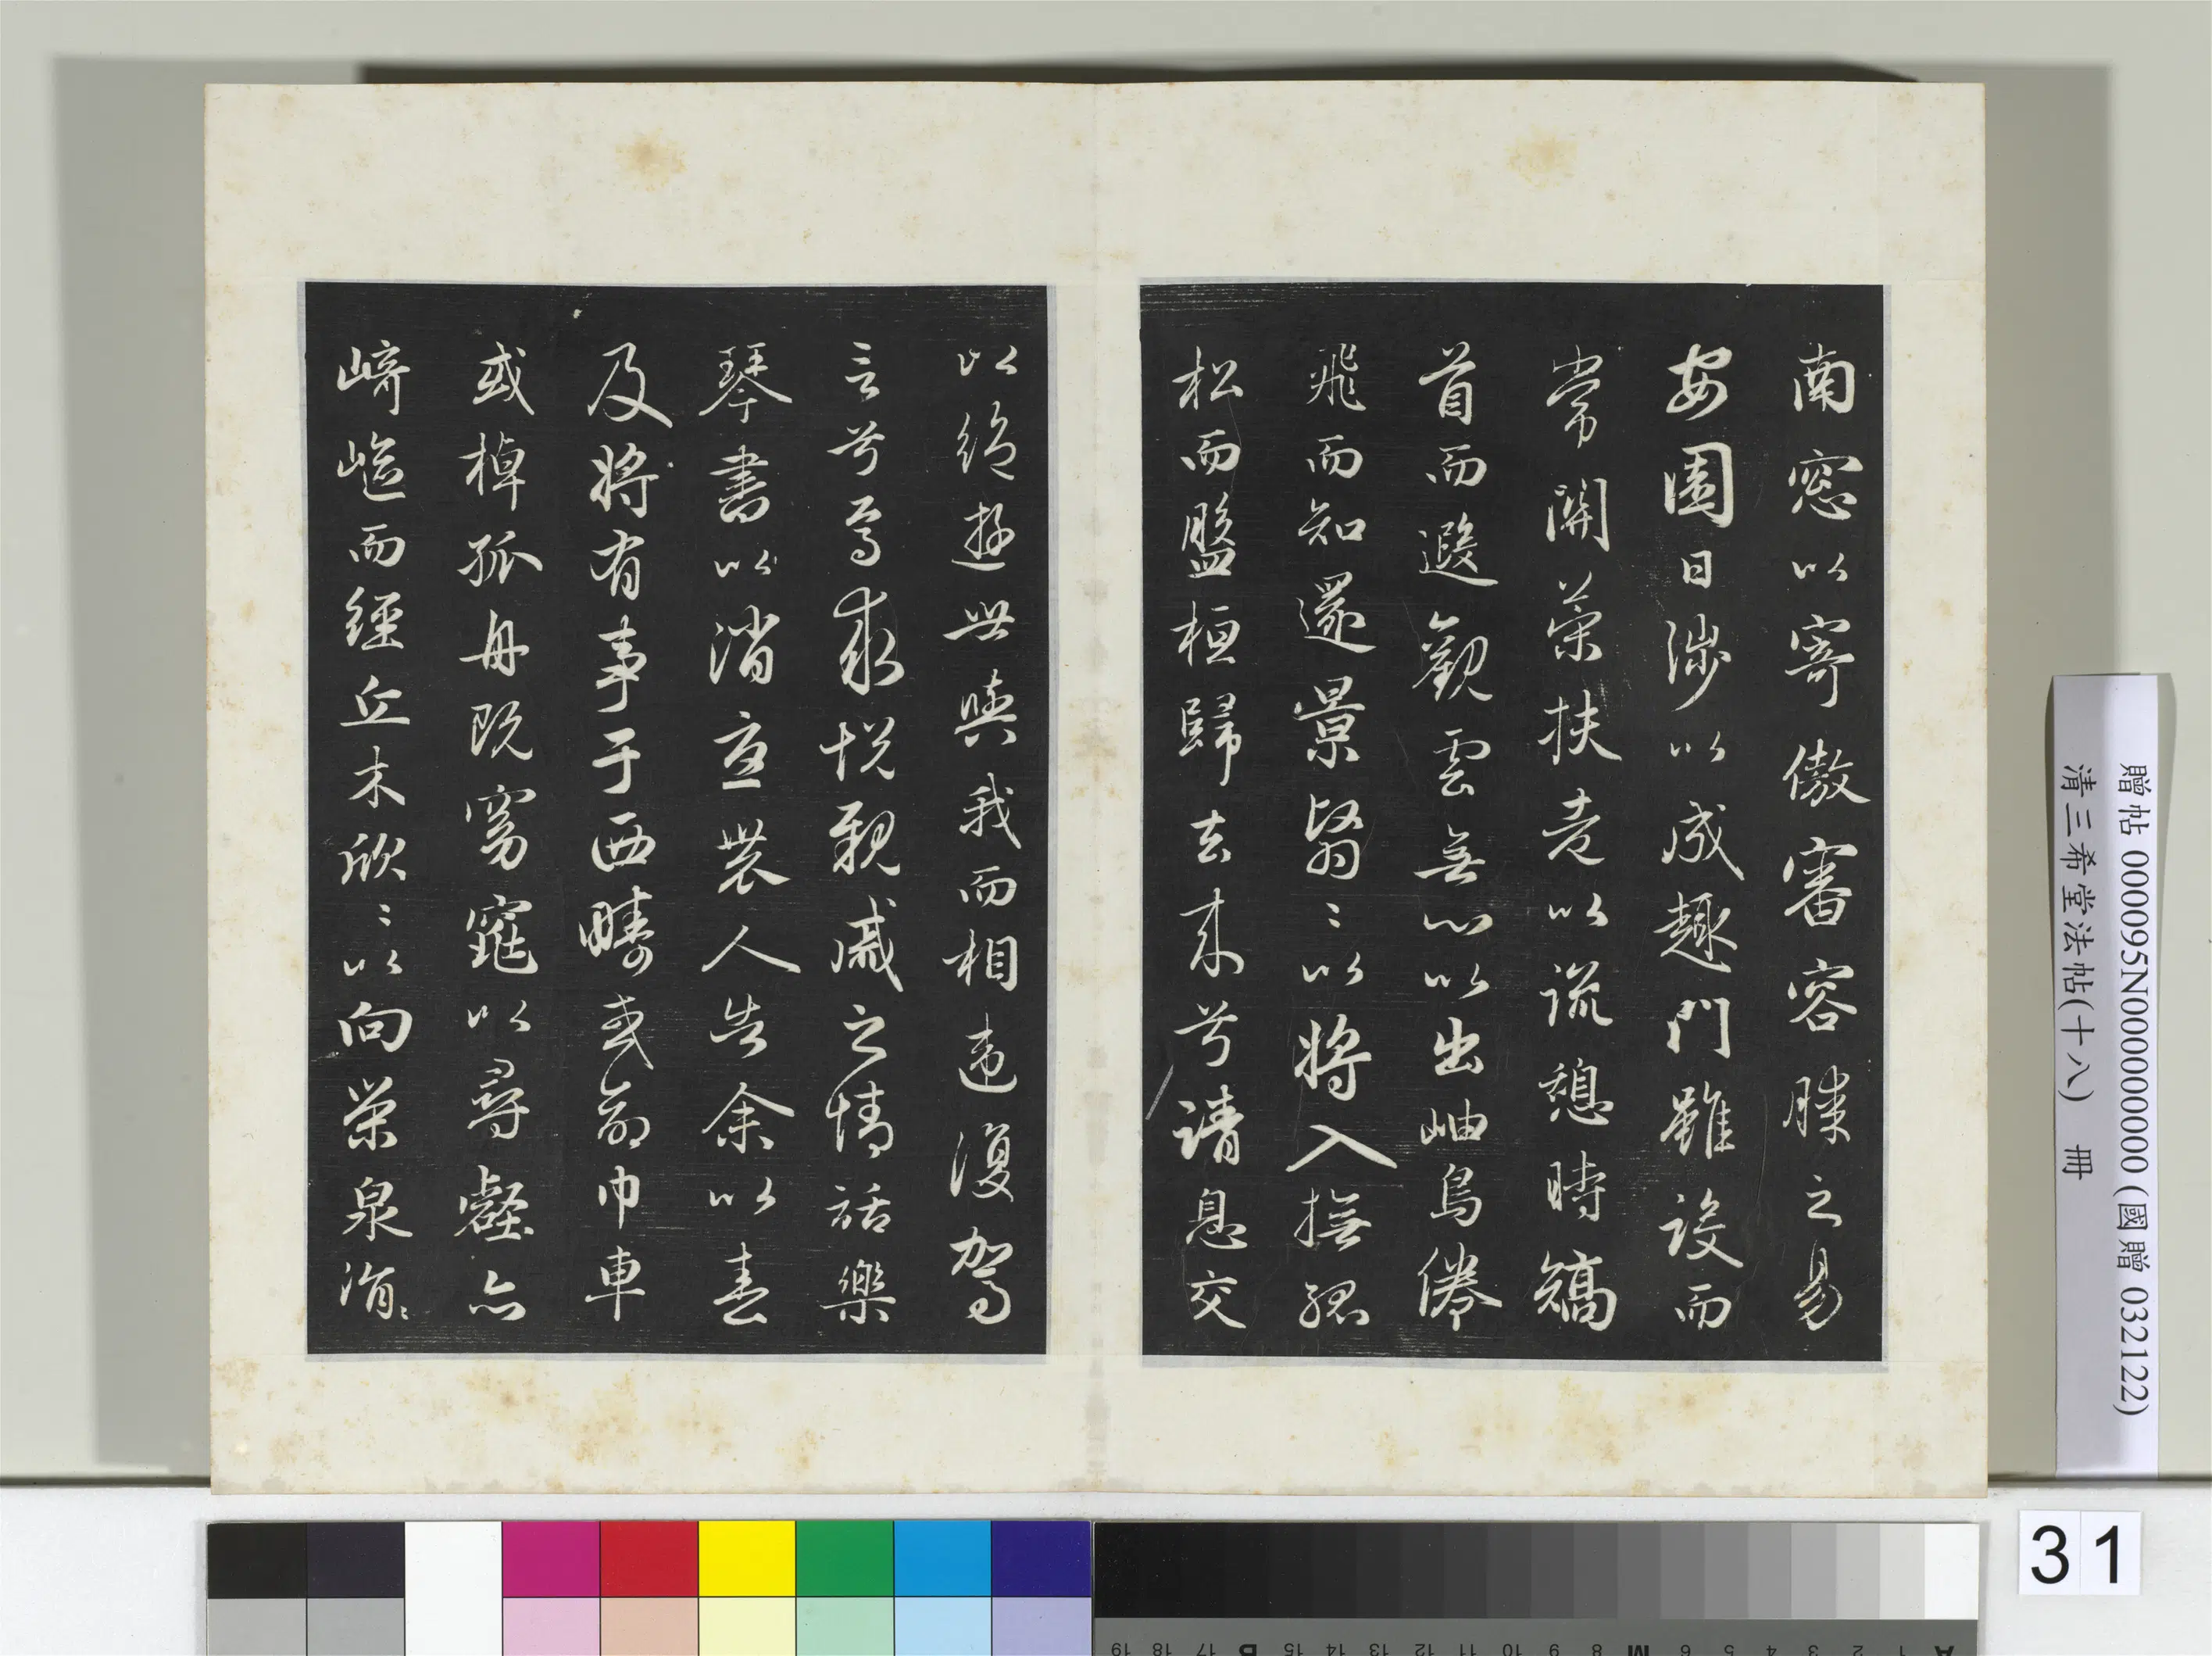 南窓以寄傲審容膝之易
安園日涉以成趣門雖設而
常關策扶老以流憩時矯
首而遐觀雲無心以出岫鳥倦
飛而知還景翳〻以將入撫孤
松而盤桓歸去来兮請息交
以絕遊世與我而相違復駕
言兮焉求悅親戚之情話樂
琴書以消憂農人告余以春
及將有事于西疇或命巾車
或棹孤舟既窈窕以尋壑亦
崎嶇而經丘木欣〻以向榮泉涓〻
贈帖 000095N000000000 (國贈 032122)
清三希堂法帖(十八) 冊
31
A 1 2 3 4 5 6 M 8 9 10 11 12 13 14 15 B 17 18 19